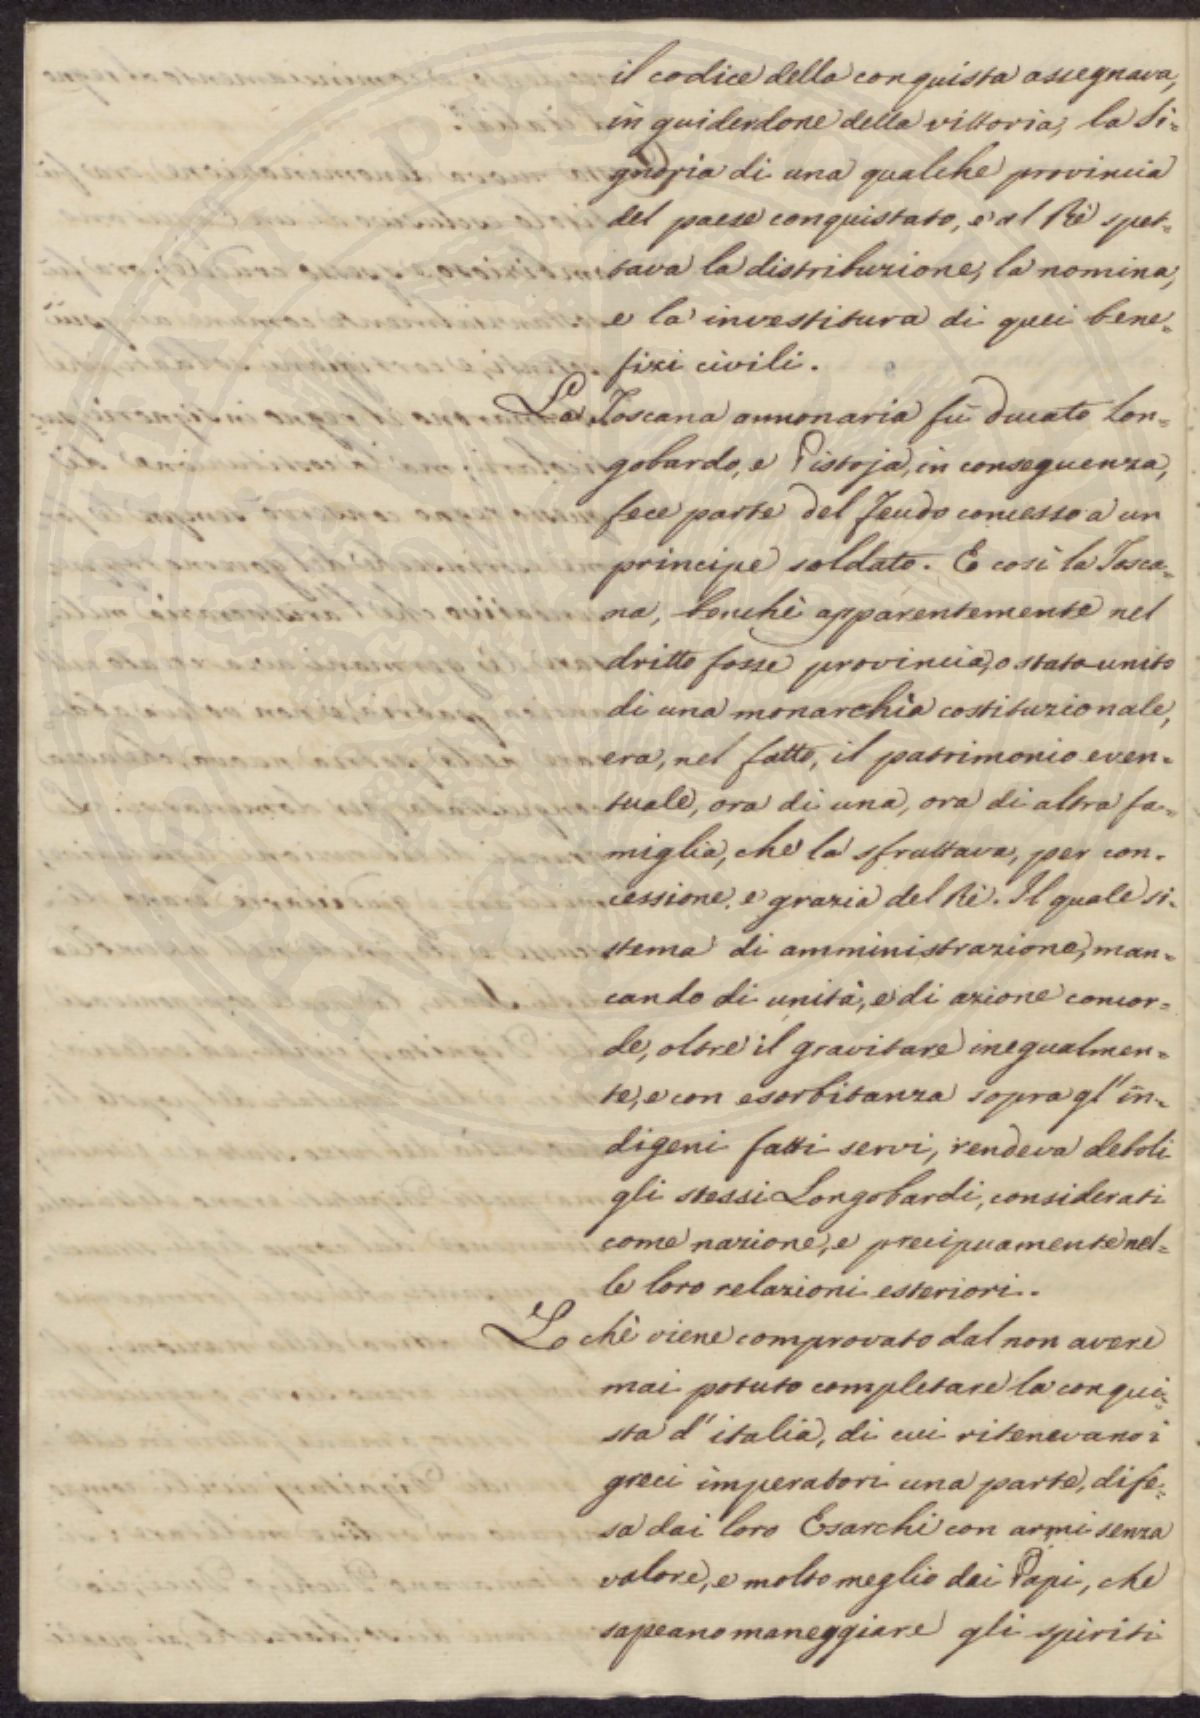 il codice della conquista assegnava,
in guiderdone della vittoria, la Si=
gnoria di una qualche provincia
del paese conquistato, e al Rè spet=
tava la distribuzione, la nomina,
e la investitura di quei bene=
fizi civili.
La Toscana annonaria fù ducato lon=
gobardo, e Pistoja, in conseguenza,
fece parte del feudo concesso a un
principe soldato. E così la Tosca=
na, benchè apparentemente nel
dritto fosse provincia, o stato unito
di una monarchia costituzionale,
era, nel fatto, il patrimonio even=
tuale, ora di una, ora di altra fa=
miglia, che la sfruttava, per con=
cessione, e grazia del Rè. Il quale si=
stema di amministrazione, man=
cando di unità, e di azione concor=
de, oltre il gravitare inegualmen=
te, e con esorbitanza sopra gl'in=
digeni fatti servi, rendeva deboli
gli stessi Longobardi, considerati
come nazione, e precipuamente nel=
le loro relazioni esteriori.
Lo chè viene comprovato dal non avere
mai potuto completare la conqui=
sta d'italia, di cui ritenevano i
greci imperatori una parte, dife=
sa dai loro Esarchi con armi senza
valore, e molto meglio dai Papi, che
sapeano maneggiare gli spiriti